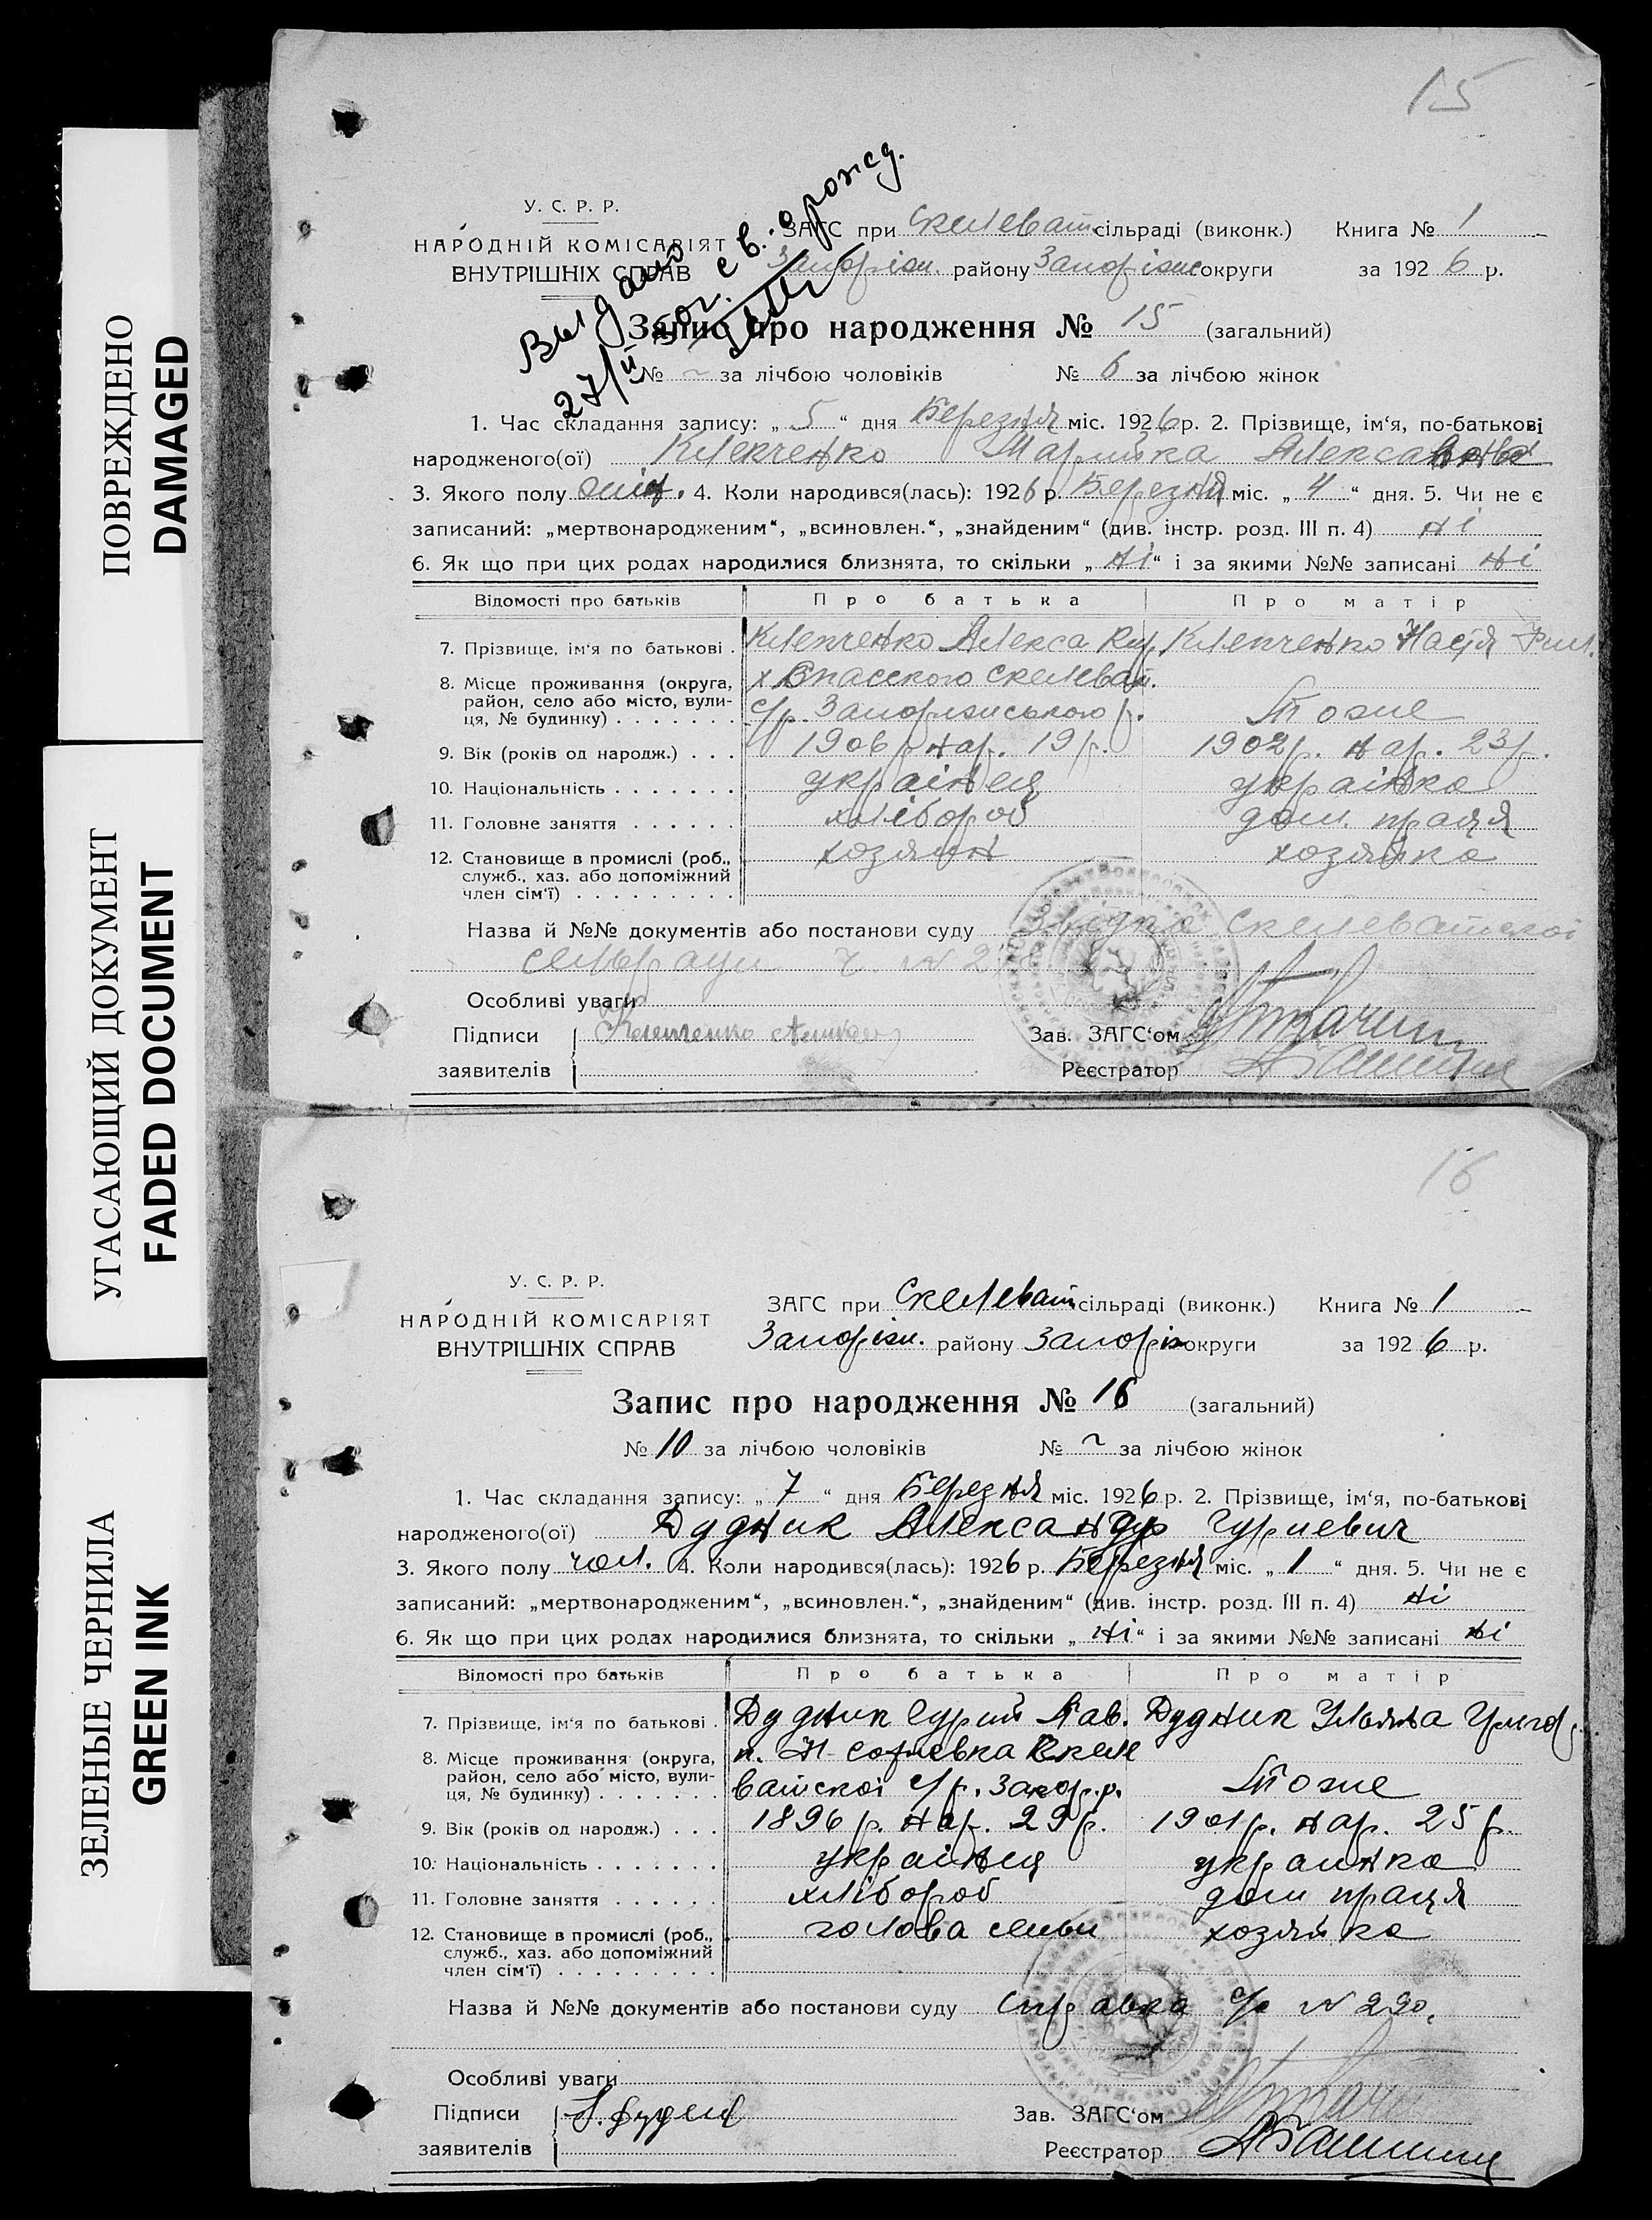 ПОВРЕЖДЕНО
DAMAGED
УГАСАЮЩИЙ ДОКУМЕНТ
FADED DOCUMENT
ЗЕЛЕНЫЕ ЧЕРНИЛА
GREEN INK
15
Выдано св. о рожд.
27/II 50г.
У. С. Р. Р.
НАРОДНІЙ КОМІСАРІЯТ
ВНУТРІШНІХ СПРАВ
ЗАГС при Скелеват сільраді (виконк.) Книга № 1
Запоріж. району Запоріж округи за 1926 р.
Запис про народження № 15 (загальний)
№ ~ за лічбою чоловіків № 6 за лічбою жінок
1. Час складання запису: „ 5 “ дня Березня міс. 1926 р. 2. Прізвище, ім'я, по-батькові
народженого(ої) Клепченко Марийка
3. Якого полу жін. 4. Коли народився(лась): 1926 р. Березня міс. „ 4 “ дня. 5. Чи не є
записаний: „мертвонародженим“, „всиновлен.“, „знайденим“ (див. інстр. розд. III п. 4) ні
6. Як що при цих родах народилися близнята, то скільки „ ні “ і за якими №№ записані ні
Відомості про батьків Про батька Про матір
7. Прізвище, ім'я по батькові . Клепченко Алекса Клепченко Настя Фил.
8. Місце проживання (округа, район, село або місто, вулиця, № будинку) . . . . . . . х Спасского Скелеват.
с/р. Запорижиського р. Тоже
9. Вік (років од народж.) . . . 1906 р. нар. 19 р. 1902 р. нар. 23 р.
10. Національність . . . . . . . українец українка
11. Головне заняття . . . . . . хлібороб дом. праця
12. Становище в промислі (роб., служб., хаз. або допоміжний член сім'ї) . . . . . . . . . хозяин хозяйка
Назва й №№ документів або постанови суду Скелеватской
сельради
Особливі уваги
Підписи
заявителів
Зав. ЗАГС'ом
Реєстратор
16
У. С. Р. Р.
НАРОДНІЙ КОМІСАРІЯТ
ВНУТРІШНІХ СПРАВ
ЗАГС при Скелеват сільраді (виконк.) Книга № 1
Запоріж. району Запоріж округи за 1926 р.
Запис про народження № 16 (загальний)
№ 10 за лічбою чоловіків № ~ за лічбою жінок
1. Час складання запису: „ 7 “ дня Березня міс. 1926 р. 2. Прізвище, ім'я, по-батькові
народженого(ої) Дудник Александр Гуриевич
3. Якого полу чол. 4. Коли народився(лась): 1926 р. Березня міс. „ 1 “ дня. 5. Чи не є
записаний: „мертвонародженим“, „всиновлен.“, „знайденим“ (див. інстр. розд. III п. 4) ні
6. Як що при цих родах народилися близнята, то скільки „ ні “ і за якими №№ записані ні
Відомості про батьків Про батька Про матір
7. Прізвище, ім'я по батькові . Дудник Гурий Пав. Дудник Ульяна Григор.
8. Місце проживання (округа, район, село або місто, вулиця, № будинку) . . . . . . . Скеле
ватскоі с/р. Запор. р. Тоже
9. Вік (років од народж.) . . . 1896 р. нар. 29 р. 1901 р. нар. 25 р.
10. Національність . . . . . . . українец украинка
11. Головне заняття . . . . . . хлібороб дом праця
12. Становище в промислі (роб., служб., хаз. або допоміжний член сім'ї) . . . . . . . . . голова семьи хозяйка
Назва й №№ документів або постанови суду справка с/р N 290.
Особливі уваги
Підписи
заявителів
Зав. ЗАГС'ом
Реєстратор